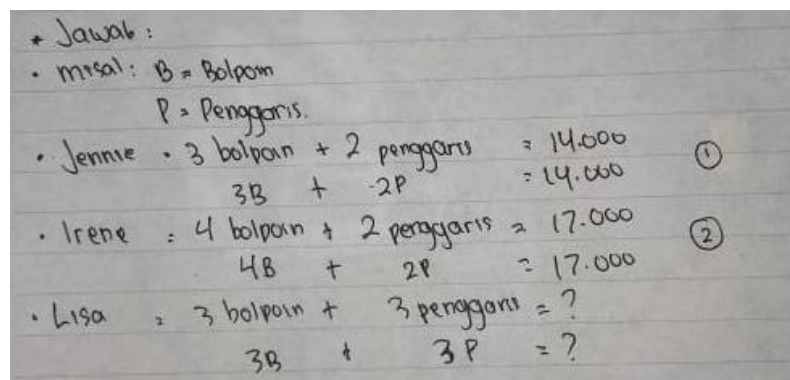 * Jawab :
• misal : B = Bolpoin
P = Penggaris.
• Jennie • 3 bolpoin + 2 penggaris = 14.000
3B + 2P = 14.000 ①
• Irene = 4 bolpoin + 2 penggaris = 17.000
4B + 2P = 17.000 ②
• Lisa = 3 bolpoin + 3 penggaris = ?
3B + 3P = ?